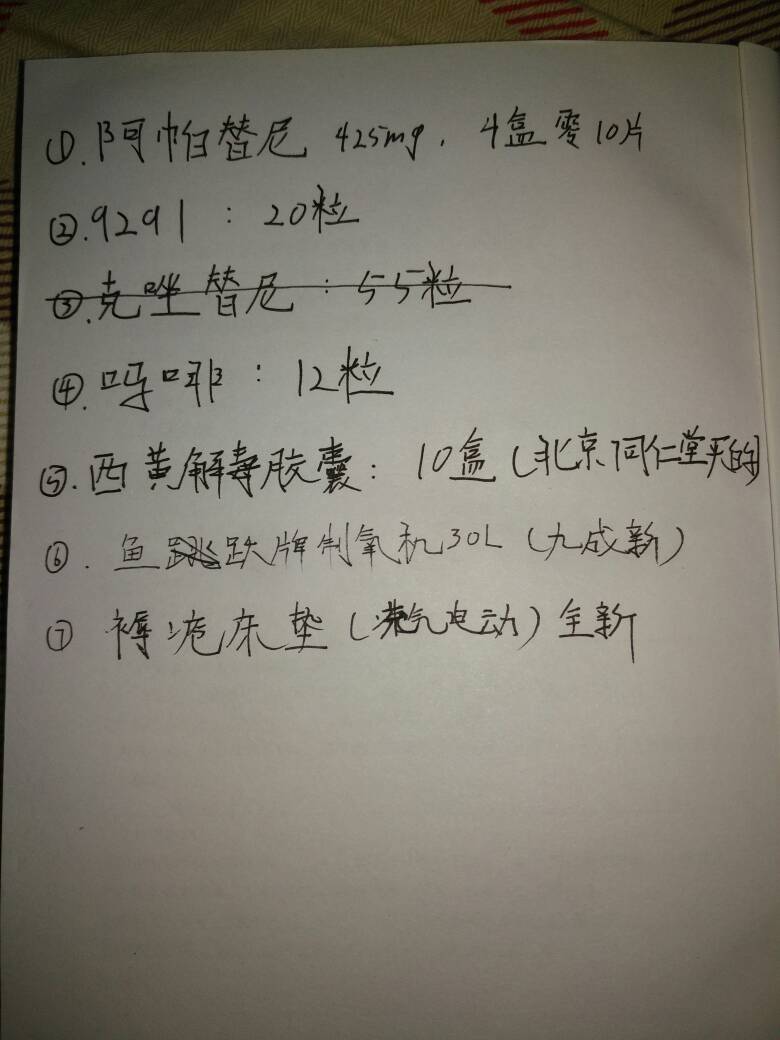 ①.阿帕替尼 425mg. 4盒零10片
②.9291:20粒
③.克唑替尼:55粒
④.吗啡:12粒
⑤.西黄解毒胶囊:10盒(北京同仁堂买的)
⑥.鱼跃牌制氧机30L(九成新)
⑦ 褥疮床垫(充气电动)全新